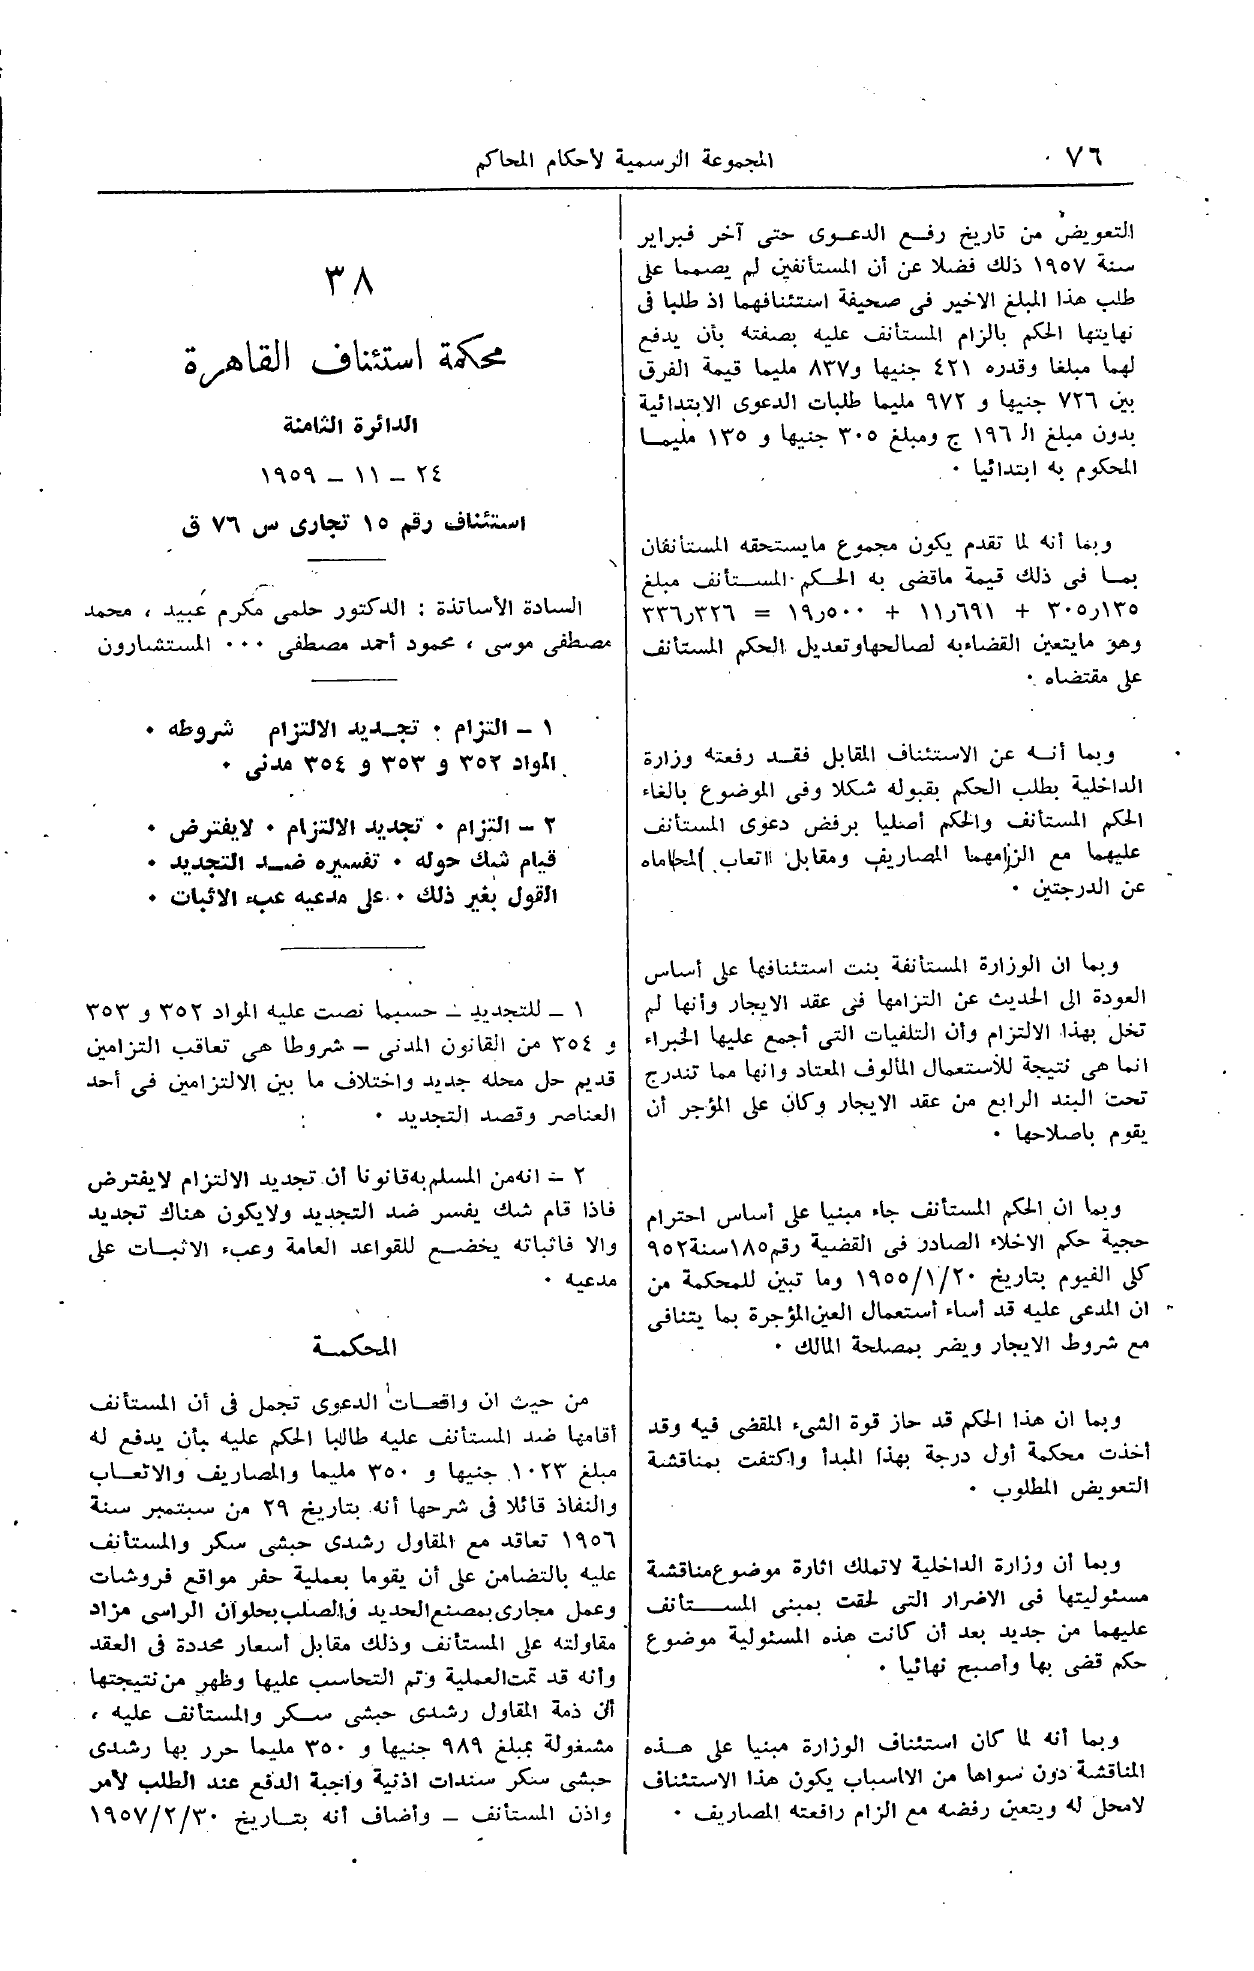 ٧٦
المجموعة الرسمية لأحكام المحاكم
التعويض من تاريخ رفع الدعوى حتى آخر فبراير
سنة ١٩٥٧ ذلك فضلا عن أن المستأنفين لم يصمما على
طلب هذا المبلغ الاخير فى صحيفة استئنافهما اذ طلبا فى
نهايتها الحكم بالزام المستأنف عليه بصفته بأن يدفع
لهما مبلغا وقدره ٤٢١ جنيها و٨٣٧ مليما قيمة الفرق
بين ٧٢٦ جنيها و ٩٧٢ مليما طلبات الدعوى الابتدائية
بدون مبلغ الـ ١٩٦ ج ومبلغ ٣٠٥ جنيها و ١٣٥ مليمـا
المحكوم به ابتدائيا .
وبما أنه لما تقدم يكون مجموع مايستحقه المستأنفان
بمـا فى ذلك قيمة ماقضى به الحـكم المسـتأنف مبلغ
١٣٥ر٣٠٥ + ٦٩١ر١١ + ٥٠٠ر١٩ = ٣٢٦ر٣٣٦
وهو مايتعين القضاءبه لصالحهاوتعديل الحكم المستأنف
على مقتضاه .
وبما أنـه عن الاستئناف المقابل فقـد رفعته وزارة
الداخلية بطلب الحكم بقبوله شكلا وفى الموضوع بالغاء
الحكم المستأنف والحكم أصليا برفض دعوى المستأنف
عليهما مع الزامهما المصاريف ومقابل اتعاب المحاماه
عن الدرجتين .
وبما ان الوزارة المستأنفة بنت استئنافها على أساس
العودة الى الحديث عن التزامها فى عقد الايجار وأنها لم
تخل بهذا الالتزام وأن التلفيات التى أجمع عليها الخبراء
انما هى نتيجة للأستعمال المألوف المعتاد وانها مما تندرج
تحت البند الرابع من عقد الايجار وكان على المؤجر أن
يقوم باصلاحها .
وبما ان الحكم المستأنف جاء مبنيا على أساس احترام
حجية حكم الاخلاء الصادر فى القضية رقم١٨٥سنة٩٥٢
كلى الفيوم بتاريخ ١٩٥٥/١/٢٠ وما تبين للمحكمة من
ان المدعى عليه قد أساء أستعمال العين المؤجرة بما يتنافى
مع شروط الايجار ويضر بمصلحة المالك .
وبما ان هذا الحكم قد حاز قوة الشىء المقضى فيه وقد
أخذت محكمة أول درجة بهذا المبدأ واكتفت بمناقشة
التعويض المطلوب .
وبما أن وزارة الداخلية لاتملك اثارة موضوع مناقشة
مسئوليتها فى الاضرار التى لحقت بمبنى المسـتأنف
عليهما من جديد بعد أن كانت هذه المسئولية موضوع
حكم قضى بها وأصبح نهائيا .
وبما أنه لما كان استئناف الوزارة مبنيا على هـذه
المناقشة دون سواها من الاسباب يكون هذا الاستئناف
لامحل له ويتعين رفضه مع الزام رافعته المصاريف .
٣٨
محكمة استئناف القاهرة
الدائرة الثامنة
٢٤ – ١١ – ١٩٥٩
استئناف رقم ١٥ تجارى س ٧٦ ق
السادة الأساتذة : الدكتور حلمى مكرم عبيد ، محمد
مصطفى موسى ، محمود أحمد مصطفى ... المستشارون
١ – التزام . تجـديد الالتزام شروطه .
المواد ٣٥٢ و ٣٥٣ و ٣٥٤ مدنى .
٢ – التزام . تجديد الالتزام . لايفترض .
قيام شك حوله . تفسيره ضـد التجديد .
القول بغير ذلك . على مدعيه عبء الاثبات .
١ – للتجديد – حسبما نصت عليه المواد ٣٥٢ و ٣٥٣
و ٣٥٤ من القانون المدنى – شروطا هى تعاقب التزامين
قديم حل محله جديد واختلاف ما بين الالتزامين فى أحد
العناصر وقصد التجديد .
٢ – انه من المسلم به قانونا أن تجديد الالتزام لايفترض
فاذا قام شك يفسر ضد التجديد ولايكون هناك تجديد
والا فاثباته يخضـع للقواعد العامة وعبء الاثبـات على
مدعيه .
المحكمـة
من حيث ان واقعـات الدعوى تجمل فى أن المستأنف
أقامها ضد المستأنف عليه طالبا الحكم عليه بأن يدفع له
مبلغ ١٠٢٣ جنيها و ٣٥٠ مليما والمصاريف والاتعـاب
والنفاذ قائلا فى شرحها أنه بتاريخ ٢٩ من سبتمبر سنة
١٩٥٦ تعاقد مع المقاول رشدى حبشى سكر والمستأنف
عليه بالتضامن على أن يقوما بعملية حفر مواقع فروشات
وعمل مجارى بمصنع الحديد والصلب بحلوان الراسى مزاد
مقاولته على المستأنف وذلك مقابل أسعار محددة فى العقد
وأنه قد تمت العملية وتم التحاسب عليها وظهر من نتيجتها
أن ذمة المقاول رشدى حبشى سـكر والمستأنف عليه ،
مشغولة بمبلغ ٩٨٩ جنيها و ٣٥٠ مليما حرر بها رشدى
حبشى سكر سندات اذنية واجبة الدفع عند الطلب لأمر
واذن المستأنف – وأضاف أنه بتـاريخ ١٩٥٧/٢/٣٠